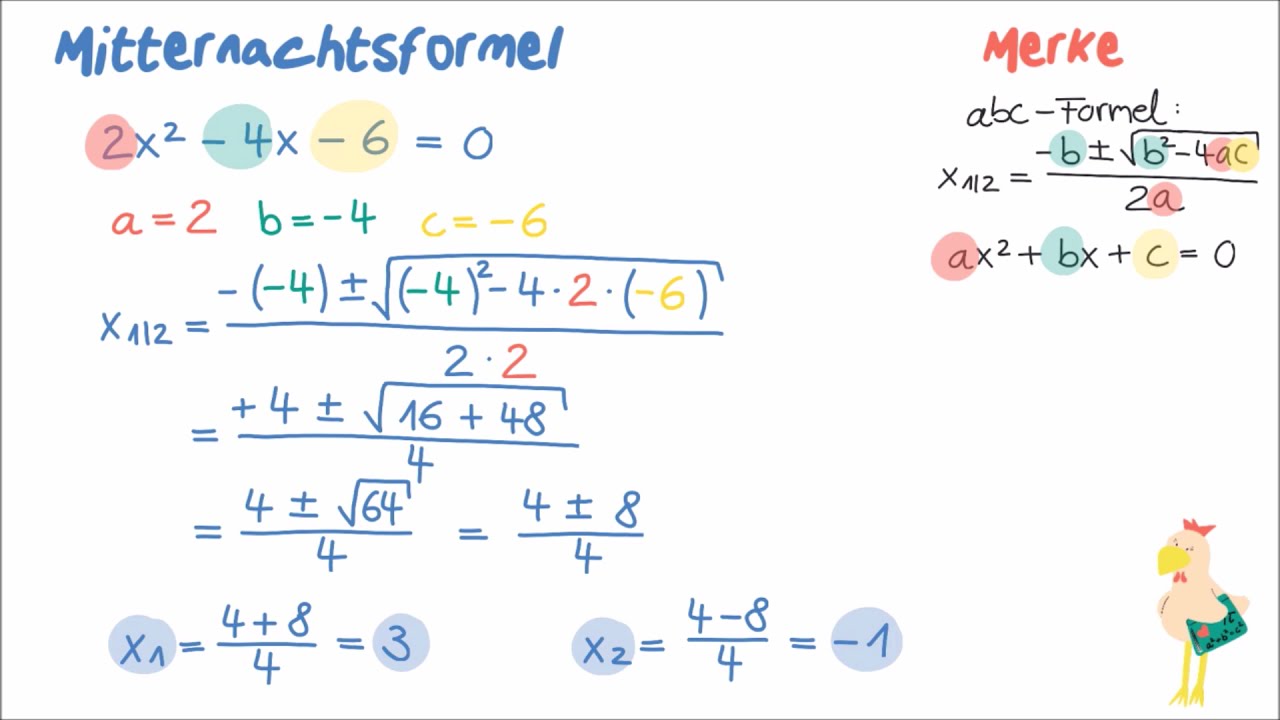 Mitternachtsformel
2x² - 4x - 6 = 0
a = 2 b = -4 c = -6
x₁|₂ = (-(-4) ± √((-4)² - 4 · 2 · (-6))) / (2 · 2)
= (+4 ± √(16 + 48)) / 4
= (4 ± √64) / 4 = (4 ± 8) / 4
x₁ = (4 + 8) / 4 = 3 x₂ = (4 - 8) / 4 = -1
Merke
abc - Formel:
x₁|₂ = (-b ± √(b² - 4ac)) / 2a
ax² + bx + c = 0
π
a²+b²=c²